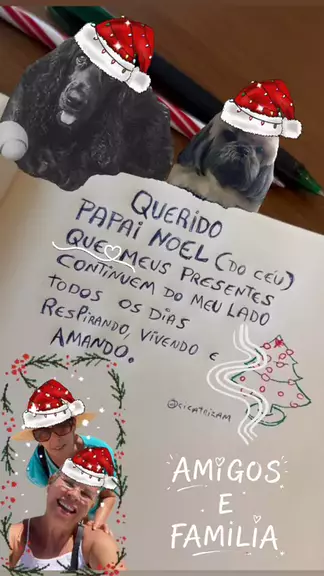 QUERIDO
PAPAI NOEL (DO CÉU)
QUE MEUS PRESENTES
CONTINUEM DO MEU LADO
TODOS OS DIAS
RESPIRANDO, VIVENDO E
AMANDO.
@CICATRIZAM
AMIGOS
E
FAMILIA